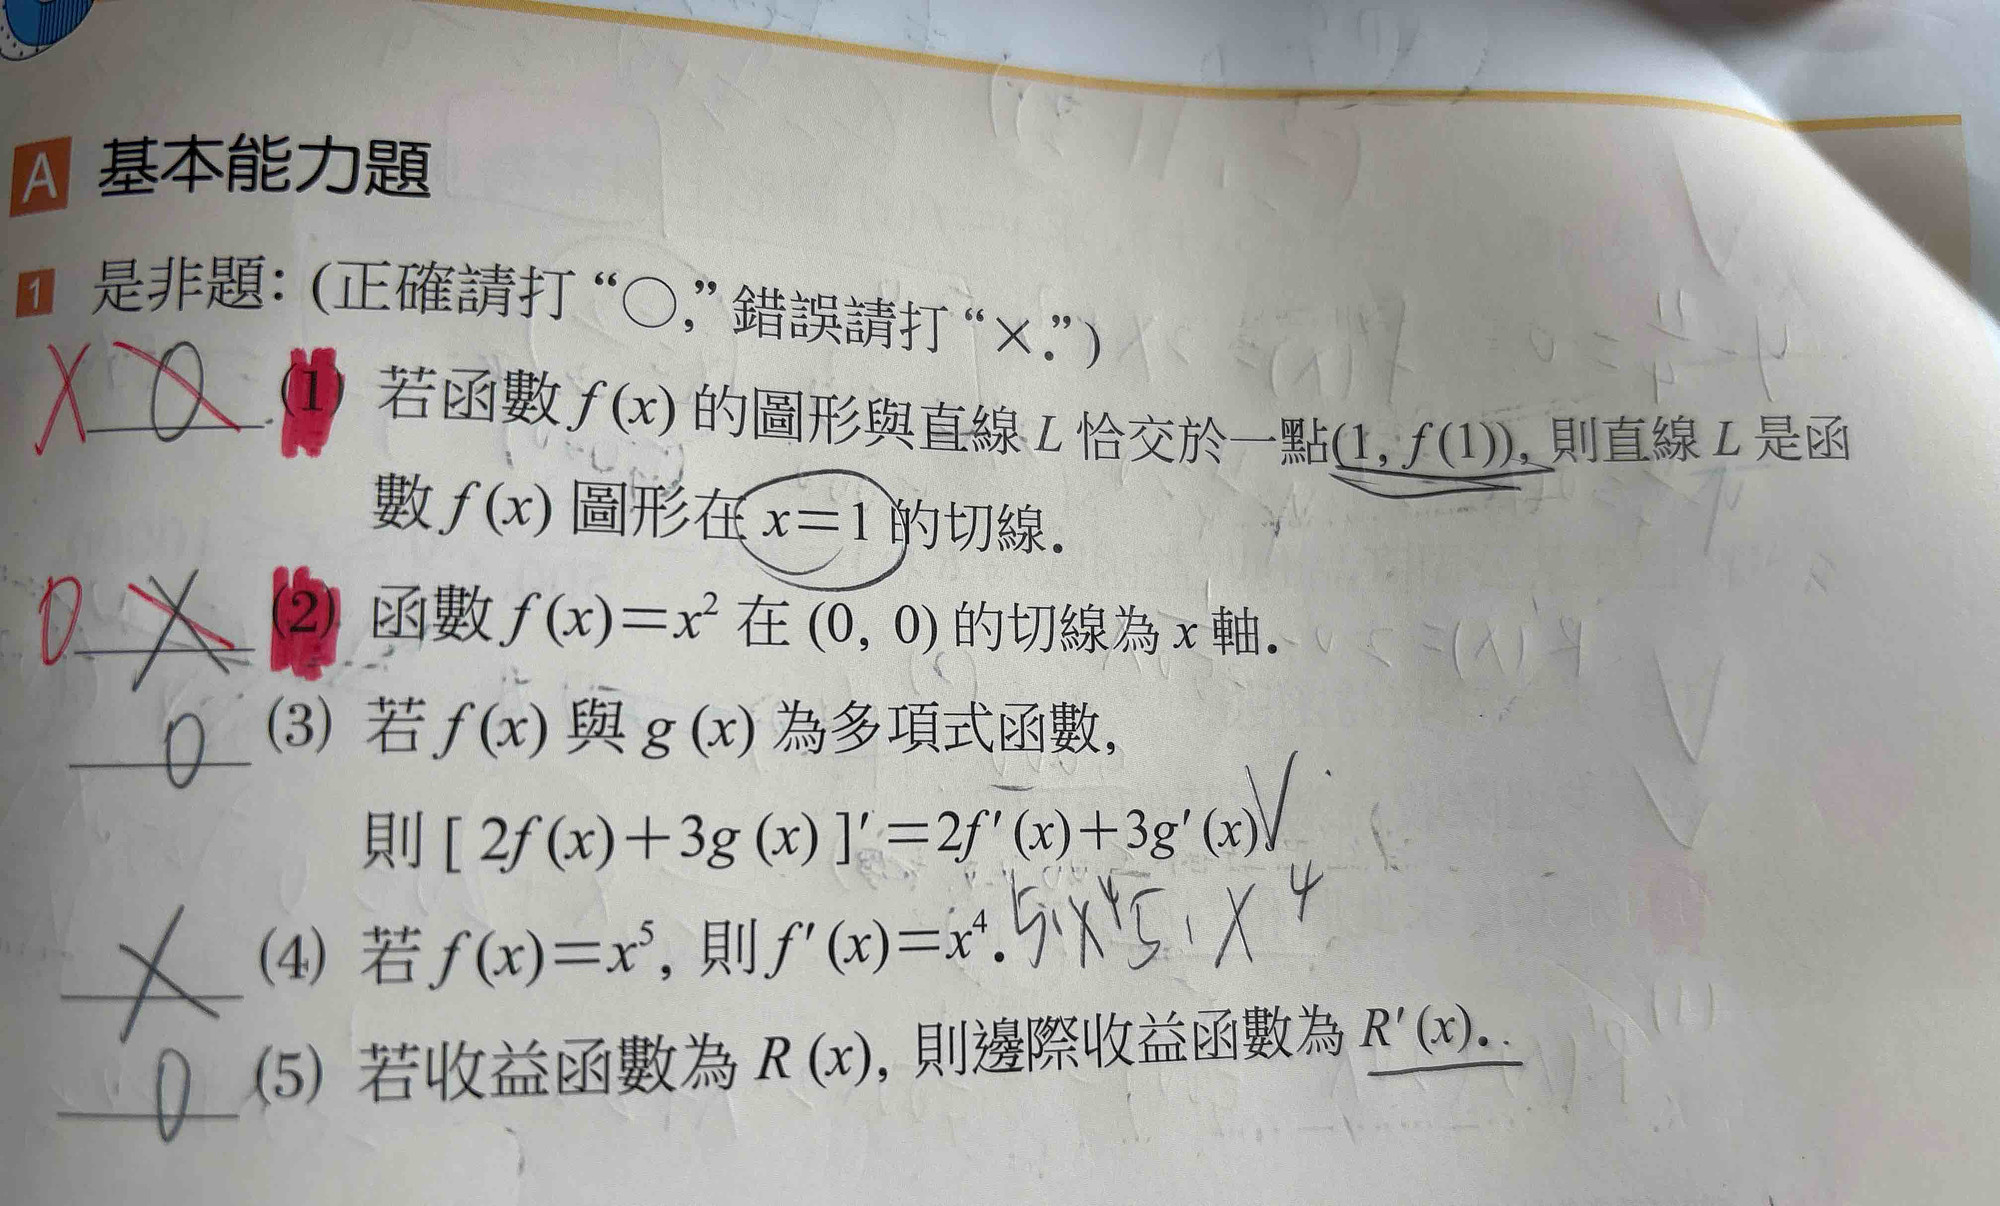 A 基本能力題
1 是非題：(正確請打“○,”錯誤請打“×.”)
X O (1) 若函數 f(x) 的圖形與直線 L 恰交於一點(1, f(1)), 則直線 L 是函
數 f(x) 圖形在 x=1 的切線.
O X (2) 函數 f(x)=x² 在 (0, 0) 的切線為 x 軸.
O (3) 若 f(x) 與 g(x) 為多項式函數,
則 [ 2f(x)+3g(x) ]′=2f′(x)+3g′(x). ✓
X (4) 若 f(x)=x⁵, 則 f′(x)=x⁴. 5·x⁴ 5·x⁴
O (5) 若收益函數為 R(x), 則邊際收益函數為 R′(x).